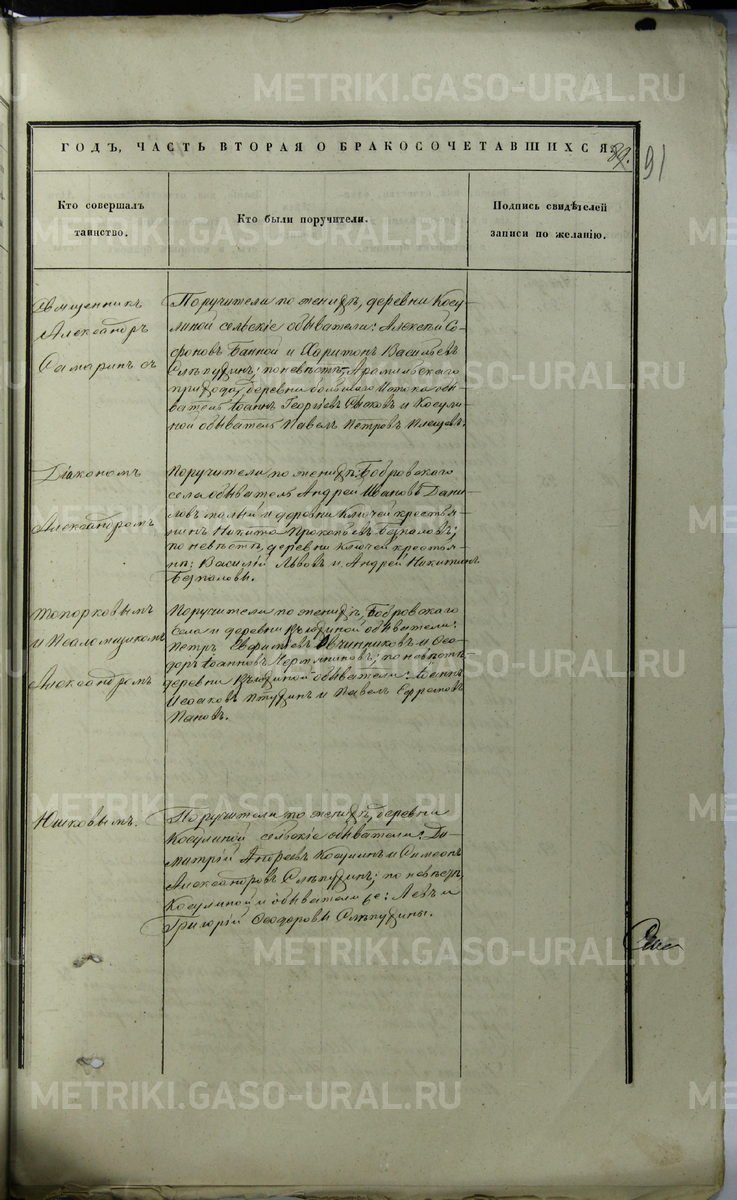 METRIKI.GASO-URAL.RU
ГОДЪ, ЧАСТЬ ВТОРАЯ О БРАКОСОЧЕТАВШИХСЯ.
89.
91
Кто совершалъ
таинство.
Кто были поручители.
Подпись свидѣтелей
записи по желанію.
Священникъ
Александръ
Самаринъ съ
Поручители по женихѣ, деревни Косу-
линой сельскіе обыватели: Алексѣй Со-
фоновъ Банной и Харитонъ Васильевъ
Слѣпудинъ; по невѣстѣ, Арамильскаго
прихода, деревни большаго Истока обы-
ватель Іоаннъ Георгіевъ и Косули-
ной обыватель Павелъ Петровъ Плещевъ.
Діакономъ
Александромъ
Поручители по женихѣ: Бобровскаго
села обыватель Андрей Ивановъ Дани-
ловъ и деревни Ключей крестья-
нинъ Никита Прокопьевъ Безпаловъ;
по невѣстѣ, деревни Ключей крестья-
не: Василій Львовъ и Андрей Никитинъ
Безпаловы.
Топорковымъ
и Псаломщикомъ
Александромъ
Поручители по женихѣ, Бобровскаго
села и деревни обыватели:
Петръ Евфиміевъ Овчинниковъ и Ѳео-
доръ Іоанновъ; по невѣстѣ,
деревни обыватели: Іоаннъ
Исааковъ и Павелъ Ефремовъ
Пановъ.
Поручители по женихѣ, деревни
Косулиной сельскіе обыватели: Ди-
митрій Андреевъ Косулинъ и Симеонъ
Александровъ Слѣпудинъ; по невѣстѣ,
Косулиной обыватели: Левъ и
Григорій Ѳеодоровы Слѣпудины.